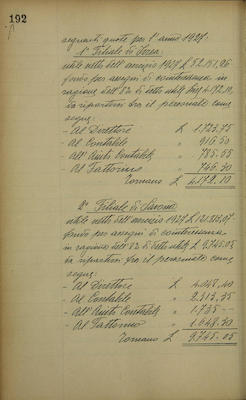 192
seguenti quote per l'anno 1927.
1° Filiale di
utile netto dell'esercizio 1927 £ 52.151,25
fondo per assegni di cointeressenza in
ragione dell'8% di detto utile £ 4.172.10,
da ripartirsi fra il personale come
segue:
- Al Direttore £ 1.723,75
- Al Contabile " 916.50
- All'Aiuto Contabile " 785.05
- Al Fattorino " 746.80
Tornano £ 4.172.10
2° Filiale di
utile netto dell'esercizio 1927 £ 121.813,07
fondo per assegni di cointeressenza
in ragione dell'8% di detto utile £ 9.745.05
da ripartirsi fra il personale come
segue:
- Al Direttore £ 4.048,40
- Al Contabile " 2.313,35
- All'Aiuto Contabile " 1.735 -
- Al Fattorino " 1.648.30
Tornano £ 9.745.05